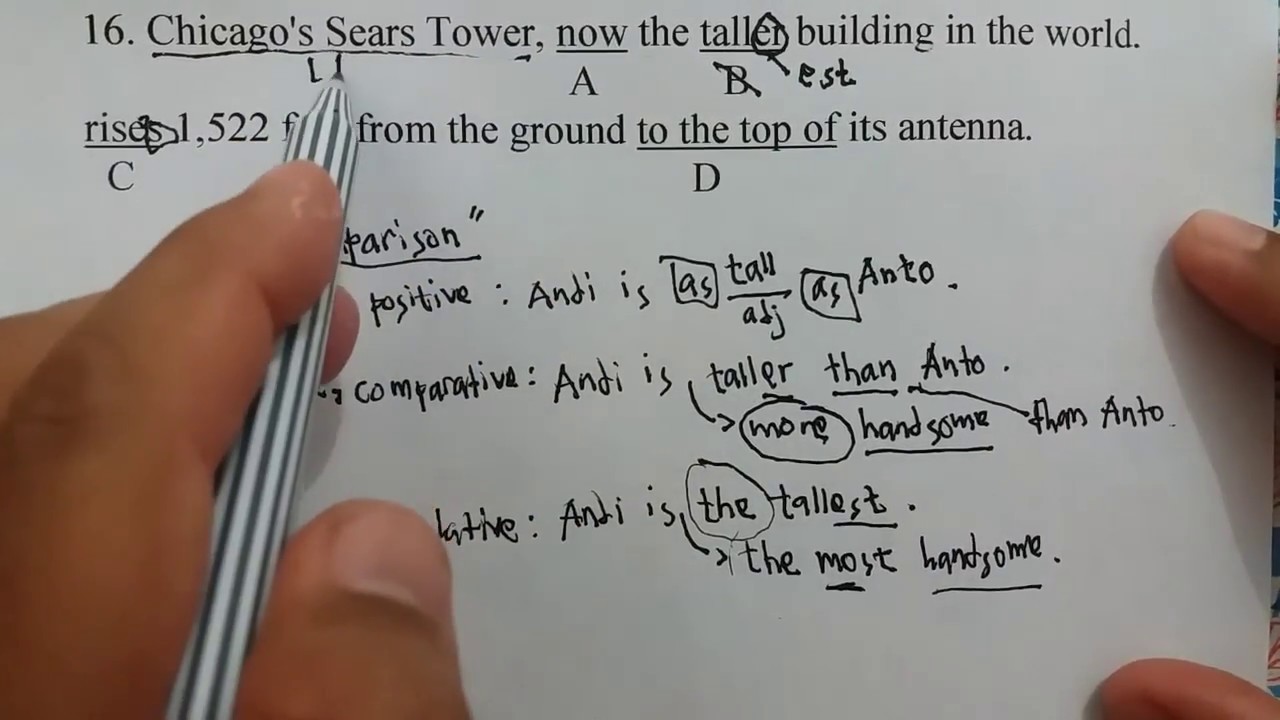 16. Chicago's Sears Tower, now the taller building in the world.
A B est
rises 1,522 from the ground to the top of its antenna.
C D
parison"
positive : Andi is as tall as Anto .
adj
comparative : Andi is taller than Anto .
more handsome than Anto .
lative : Andi is the tallest .
the most handsome .